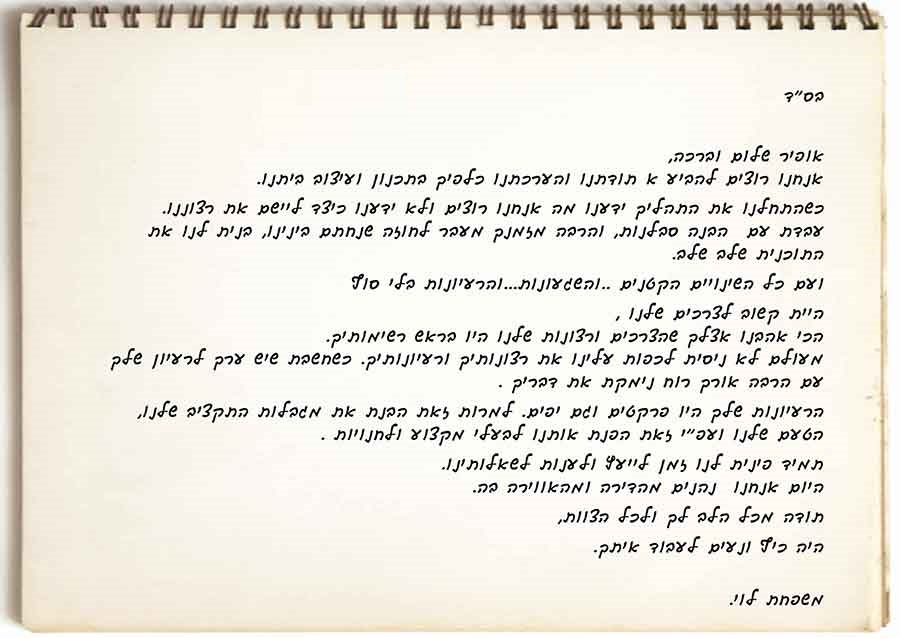 בס"ד
אופיר שלום וברכה,
אנחנו רוצים להביע א תודתנו והערכתנו כלפיך בתכנון ועיצוב ביתנו.
כשהתחלנו את התהליך ידענו מה אנחנו רוצים ולא ידענו כיצד ליישם את רצוננו.
עבדת עם הבנה סבלנות, והרבה מזמנך מעבר לחוזה שנחתם בינינו, בנית לנו את
התוכנית שלב שלב.
ועם כל השינויים הקטנים ..והשגעונות...והרעיונות בלי סוף
היית קשוב לצרכים שלנו ,
הכי אהבנו אצלך שהצרכים ורצונות שלנו היו בראש רשימותיך.
מעולם לא ניסית לכפות עלינו את רצונותיך ורעיונותיך. כשחשבת שיש ערך לרעיון שלך
עם הרבה אורך רוח נימקת את דבריך .
הרעיונות שלך היו פרקטים וגם יפים. למרות זאת הבנת את מגבלות התקציב שלנו,
הטעם שלנו ועפ"י זאת הפנת אותנו לבעלי מקצוע ולחנויות .
תמיד פינית לנו זמן לייעץ ולענות לשאלותינו.
היום אנחנו נהנים מהדירה ומהאווירה בה.
תודה מכל הלב לך ולכל הצוות,
היה כיף ונעים לעבוד איתך.
משפחת לוי.